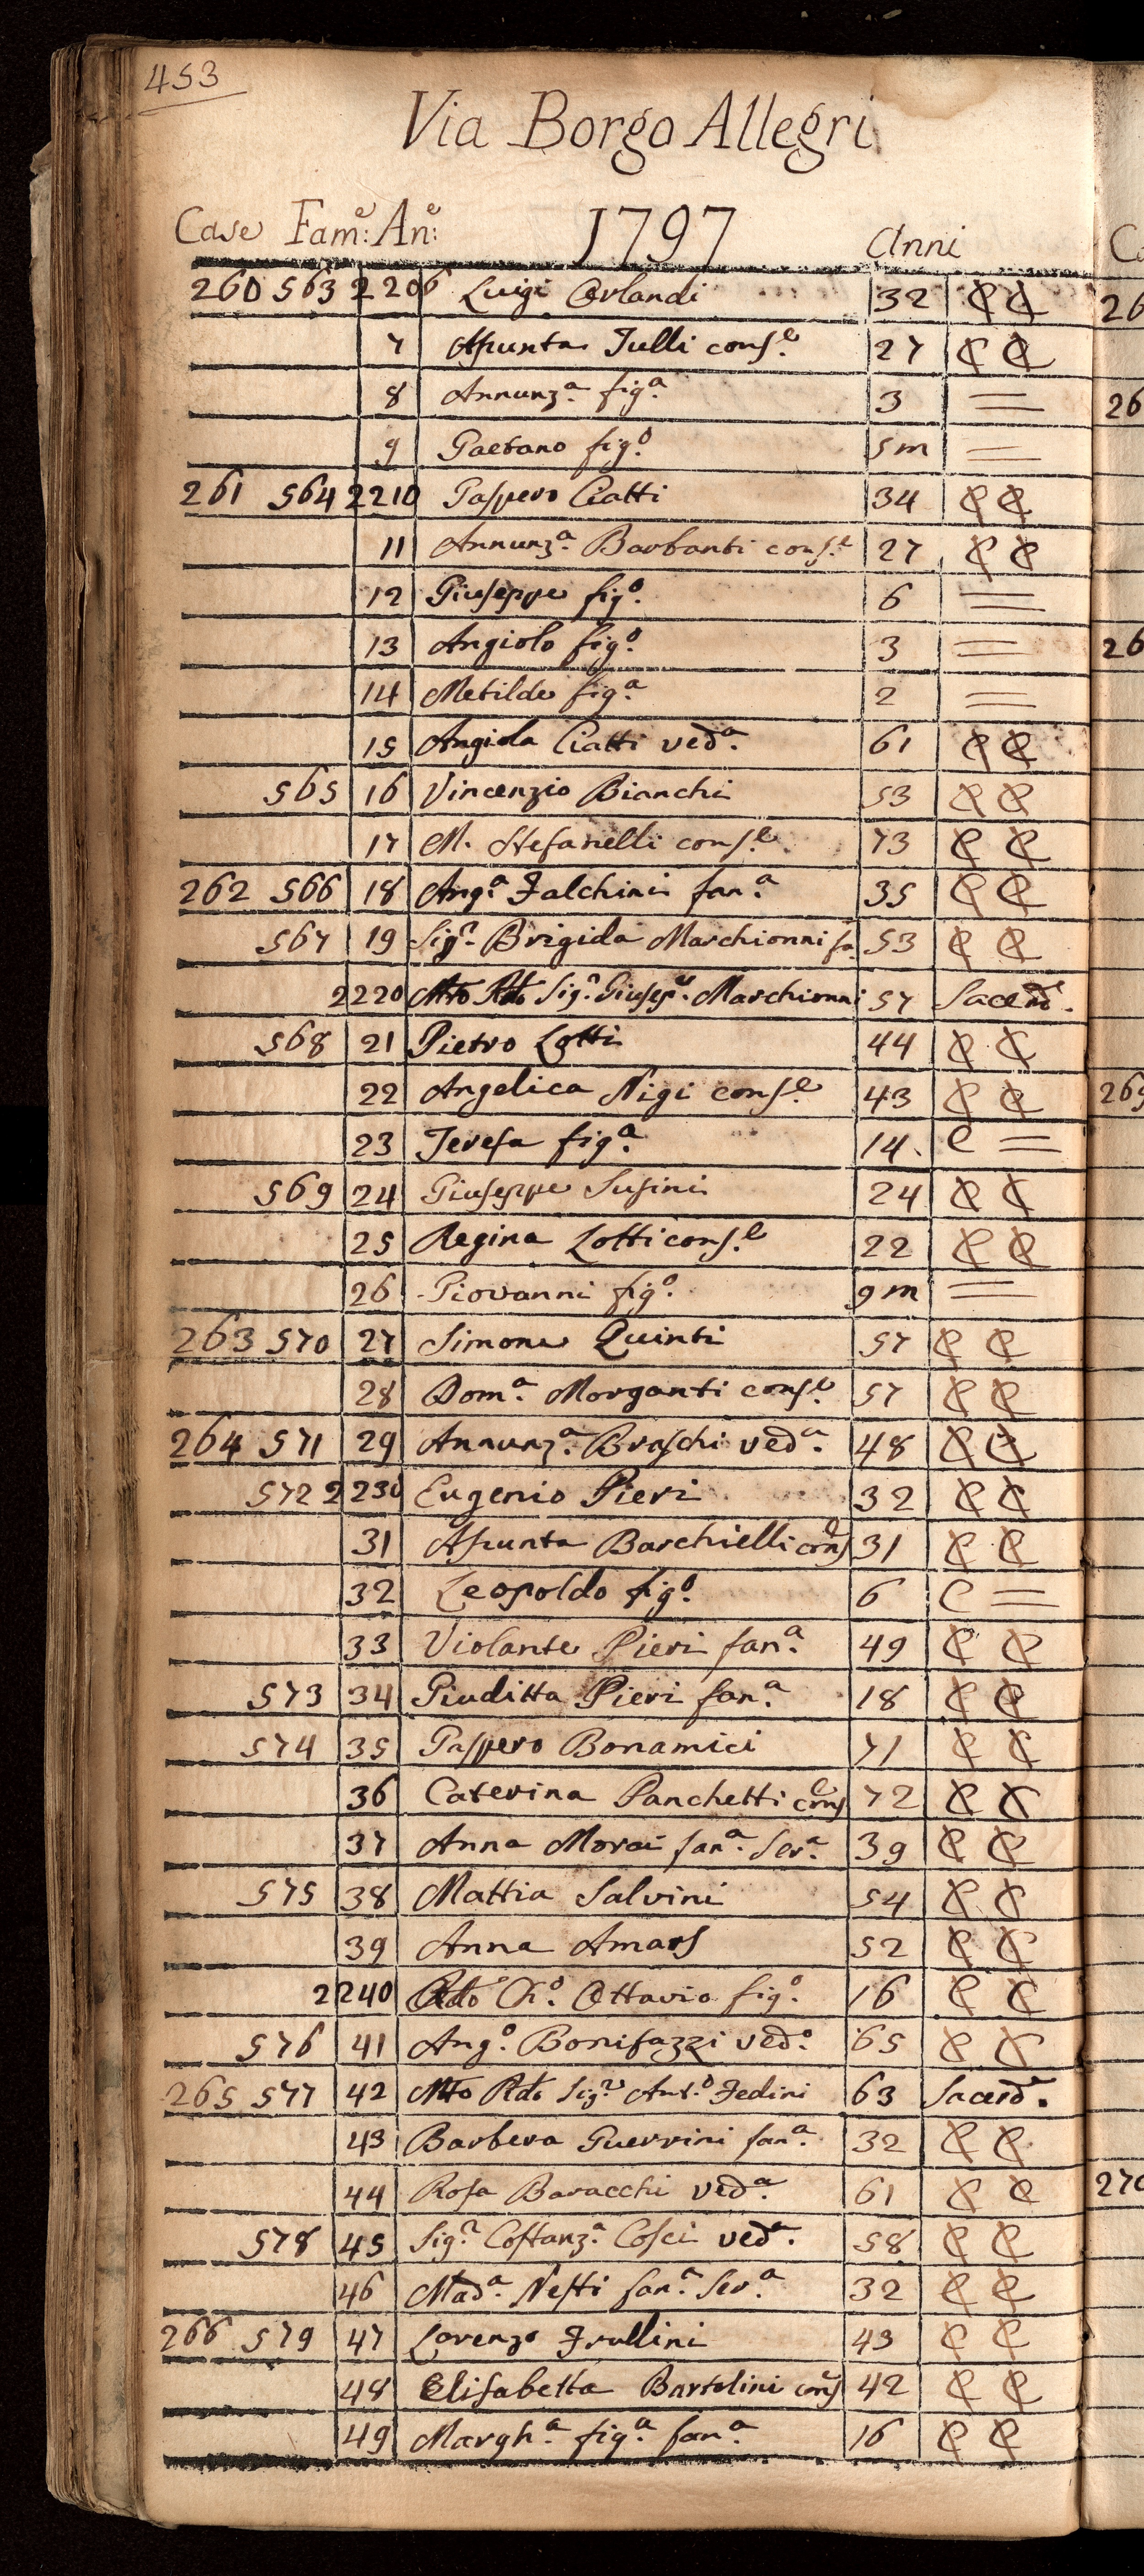 453
Via Borgo Allegri
Case Fam:e An:e 1797 Anni
260 563 2206 Luigi Orlandi 32 C C
7 Aſsunta Tulli conſ.e 27 C C
8 Annunz.a fig.a 3 =
9 Gaetano fig.o 5 m =
261 564 2210 Gaſpero Ciatti 34 C C
11 Annunz.a Barbanti conſ.e 27 C C
12 Giuſeppe fig.o 6 =
13 Angiolo fig.o 3 =
14 Metilde fig.a 2 =
15 Angiola Ciatti ved.a 61 C C
565 16 Vincenzio Bianchi 53 C C
17 M. Stefanelli conſ.e 73 C C
262 566 18 Ang.a Falchini fan.a 35 C C
567 19 Sig.ra Brigida Marchionni fa 53 C C
2220 Mto Rdo Sig.r Giuſep.e Marchionni 57 Sacerd.e
568 21 Pietro Lotti 44 C C
22 Angelica Nigi conſ.e 43 C C
23 Tereſa fig.a 14. C =
569 24 Giuſeppe Suſini 24 C C
25 Regina Lotti conſ.e 22 C C
26 Giovanni fig.o 9 m =
263 570 27 Simone Quinti 57 C C
28 Dom.a Morganti conſ.e 57 C C
264 571 29 Annunz.a Braſchi ved.a 48 C C
572 2230 Eugenio Pieri 32 C C
31 Aſsunta Barchielli conſe 31 C C
32 Leopoldo fig.o 6 C =
33 Violante Pieri fan.a 49 C C
573 34 Giuditta Pieri fan.a 18 C C
574 35 Gaſpero Bonamici 71 C C
36 Caterina Panchetti conſe 72 C C
37 Anna Morai fan.a Ser.a 39 C C
575 38 Mattia Salvini 54 C C
39 Anna 52 C C
2240 Rdo Ch.o Ottavio fig.o 16 C C
576 41 Ang.o Bonifazzi ved.o 65 C C
265 577 42 Mto Rdo Sig.re Ant.o Fedini 63 Sacerd.e
43 Barbera Guerrini fan.a 32 C C
44 Roſa Baracchi ved.a 61 C C
578 45 Sig.ra Coſtanz.a Coſci ved.a 58 C C
46 Mad.a Neſti fan.a Ser.a 32 C C
266 579 47 Lorenzo Frullini 43 C C
48 Eliſabetta Bartolini conſ 42 C C
49 Margh.a fig.a fan.a 16 C C